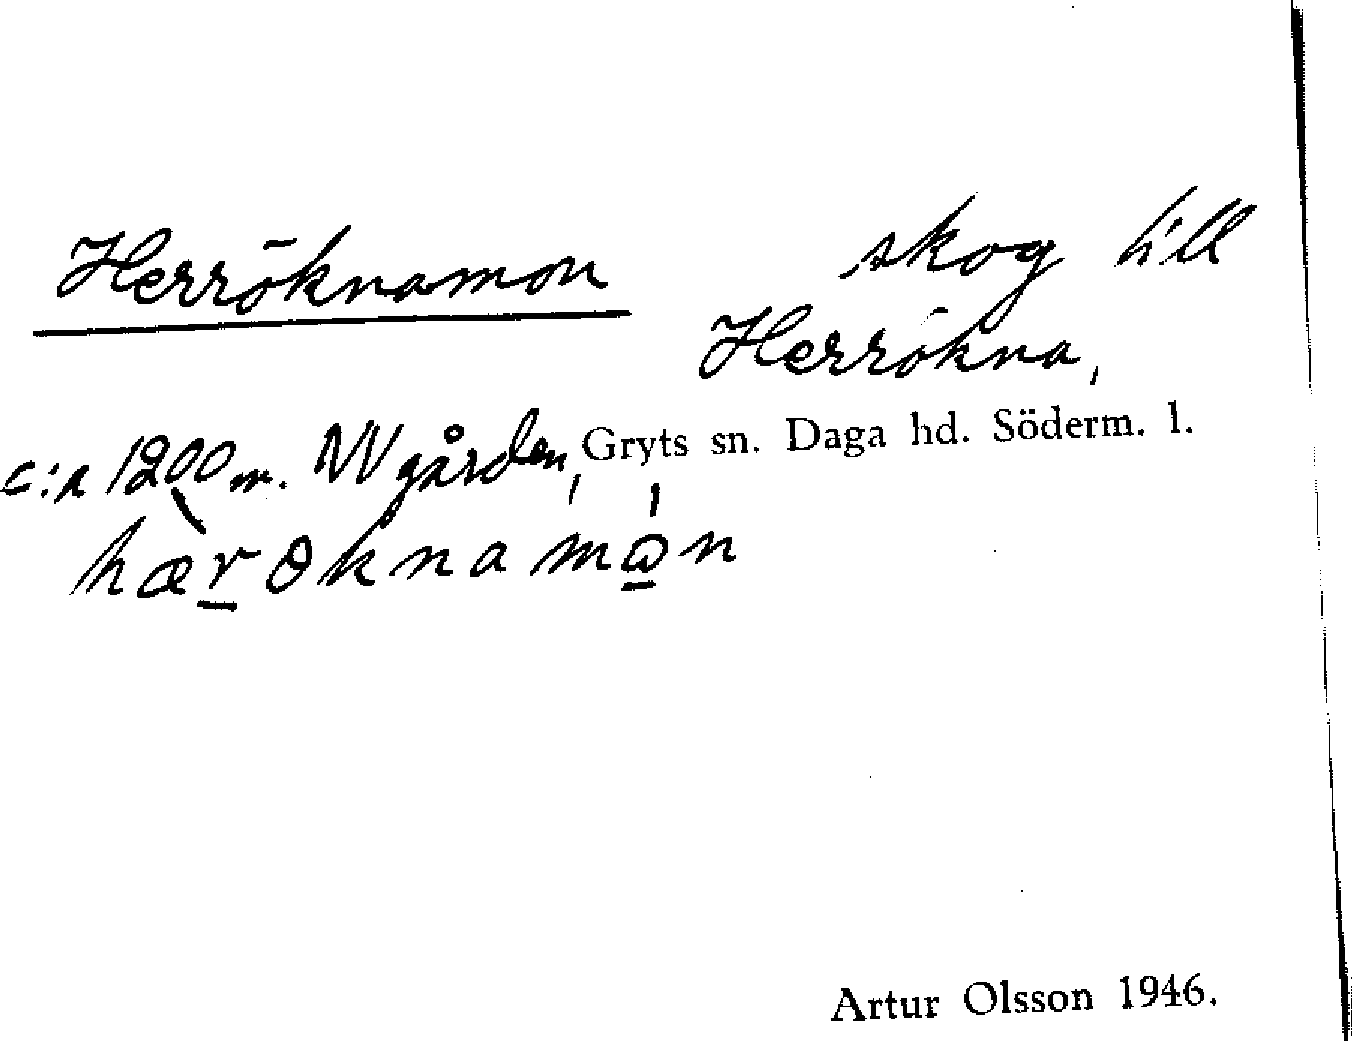 Herröknamon
skog till
Herrökna,
c:a 1200 m. NV gården, Gryts sn. Daga hd. Söderm. l.
hær̲ɵknamɷ̲n
Artur Olsson 1946.